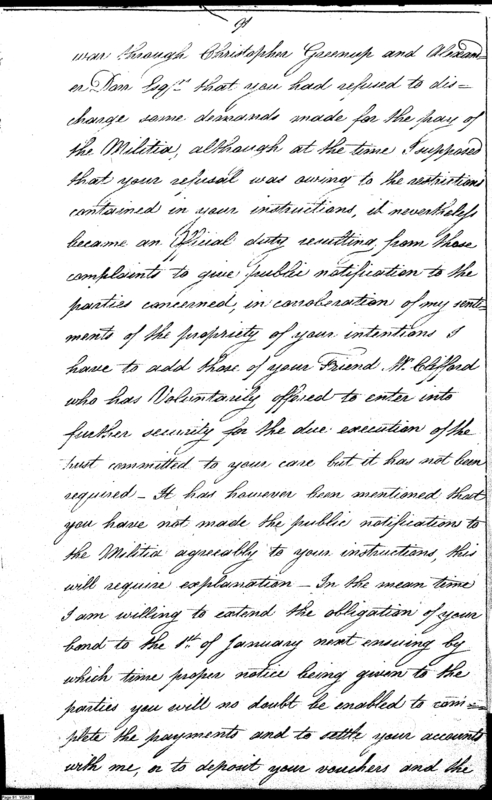 91
war through Christopher Greenup and Alexand-
er Parr Esqrs that you had refused to dis-
charge some demands made for the pay of
the Militia, although at the time I supposed
that your refusal was owing to the restrictions
contained in your instructions, it nevertheless
became an Official duty resulting from those
complaints to give public notification to the
parties concerned, in corroberation of my senti-
ments of the propriety of your intentions I
have to add those of your Friend Mr. Clifford
who has Voluntarily offered to enter into
further security for the due execution of the
trust committed to your care but it has not been
required – It has however been mentioned that
you have not made the public notification to
the Militia agreeably to your instructions, this
will require explanation – In the mean time
I am willing to extend the obligation of your
bond to the 1st. of January next ensuing by
which time proper notice being given to the
parties you will no doubt be enabled to com-
plete the payments and to settle your accounts
with me, or to deposit your vouchers and the